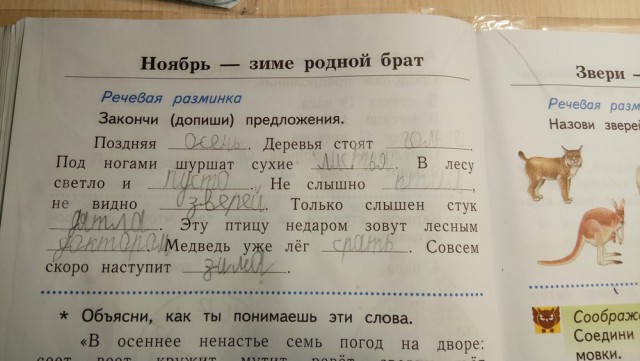 Ноябрь — зиме родной брат
Речевая разминка
Закончи (допиши) предложения.
Поздняя осень. Деревья стоят голые.
Под ногами шуршат сухие листья. В лесу
светло и пусто. Не слышно птиц,
не видно зверей. Только слышен стук
дятла. Эту птицу недаром зовут лесным
доктором. Медведь уже лёг срать. Совсем
скоро наступит зима.
* Объясни, как ты понимаешь эти слова.
«В осеннее ненастье семь погод на дворе:
сеет, веет, кружит, мутит, рвёт,
Звери —
Речевая разм
Назови звере
Соображ
Соедини
мовки.